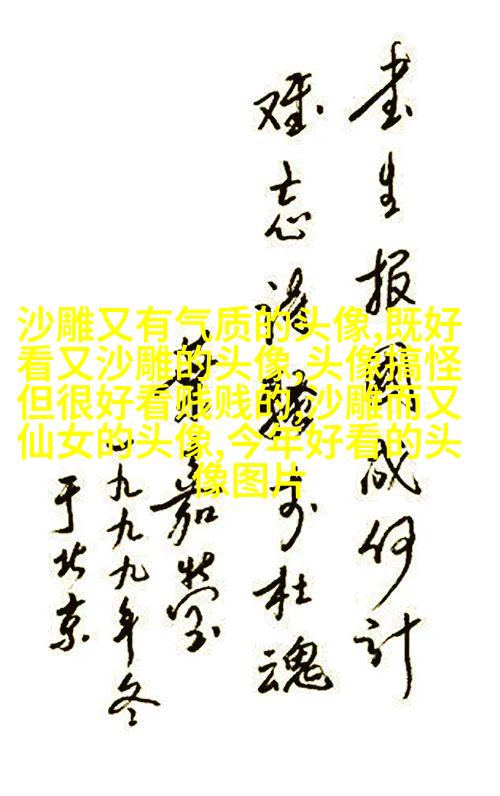 沙雕又有气质的头像,既好
看又沙雕的头像,头像搞怪
但很好看贱贱的,沙雕而又
仙女的头像,今年好看的头
像图片
书生报國成何计
难忘诗骚李杜魂
嘉莹
一九九九年冬
于北京